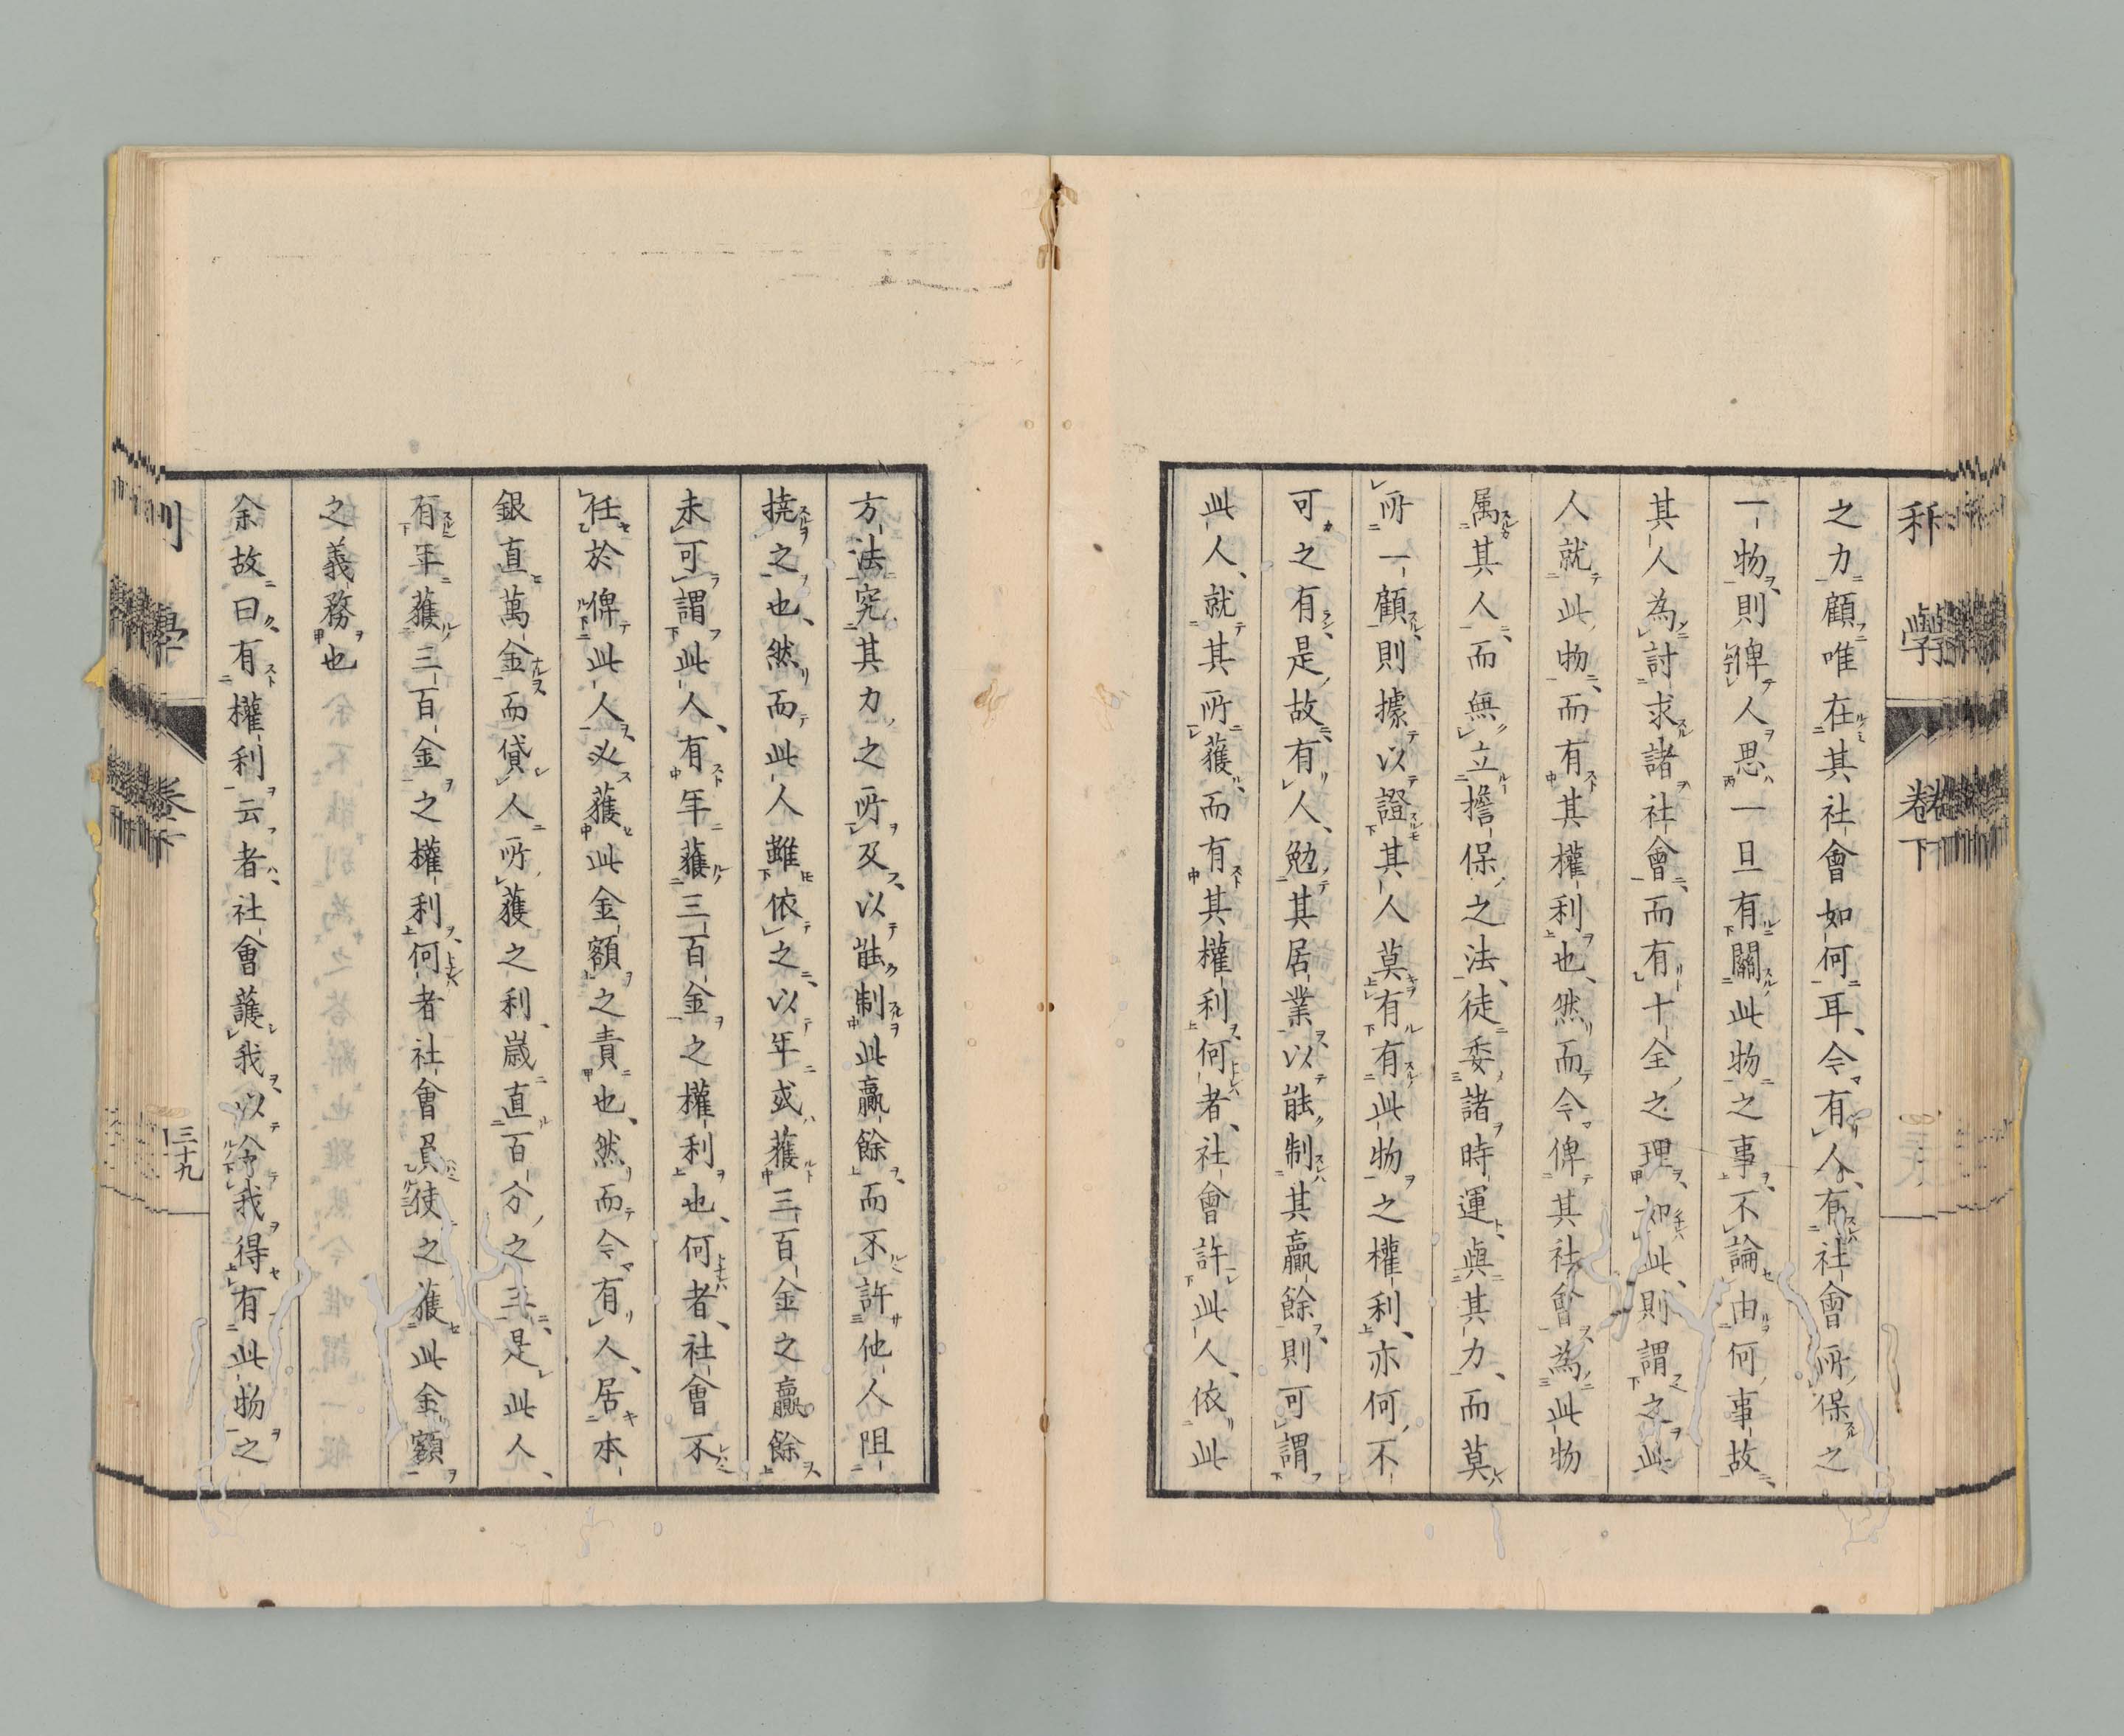 利學 卷下
之力顧唯在其社會如何耳、今有人、有社會所保之
一物則俾人思一旦有關此物之事不論由何事故
其人為討求諸社會而有十全之理如此、則謂之此
人就此物而有其權利也、然而今俾其社會為此物
属其人而無立擔保之法、徒委諸時運與其力、而莫
所一顧則據以證其人莫有有此物之權利、亦何不
可之有是故有人、勉其居業以能制其贏餘則可謂
此人、就其所獲而有其權利何者、社會許此人、依此
方法究其力之所及以能制此贏餘而不許他人阻
撓之也、然而此人雖依之以年或獲三百金之贏餘
未可謂此人、有年獲三百金之權利也、何者、社會不
任於俾此人必獲此金額之責也、然而今有人、居本
銀直萬金而貸人所獲之利、歲直百分之三是此人、
有年獲三百金之權利何者社會員使之獲此金額
之義務也
余故曰有權利云者社會護我以令我得有此物之
利學 卷下 三十九